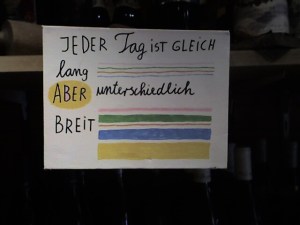 JEDER Tag IST GLEICH
lang
ABER unterschiedlich
BREIT